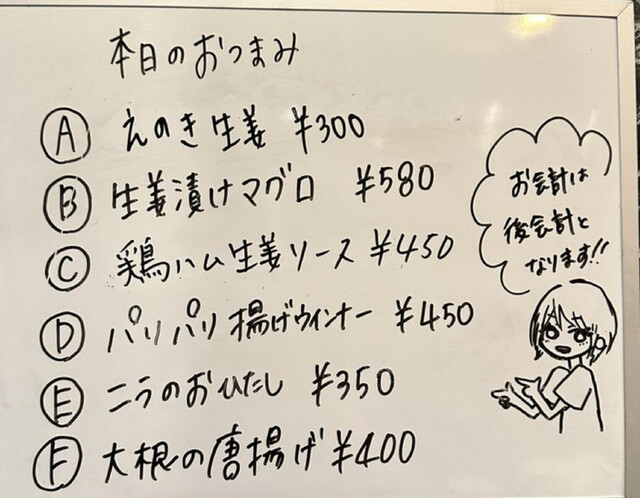 本日のおつまみ
Ⓐ えのき生姜 ¥300
Ⓑ 生姜漬けマグロ ¥580
Ⓒ 鶏ハム生姜ソース ¥450
Ⓓ パリパリ揚げウインナー ¥450
Ⓔ ニラのおひたし ¥350
Ⓕ 大根の唐揚げ ¥400
お会計は
後会計と
なります!!